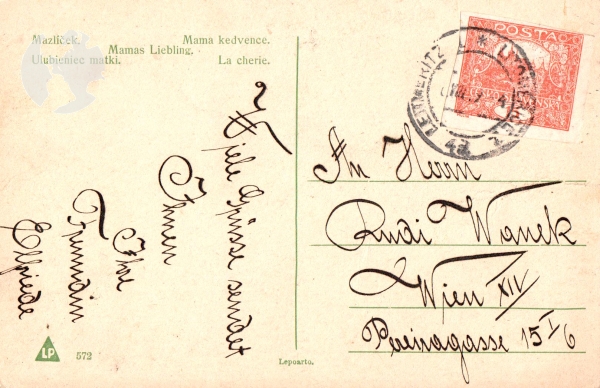 Mazlíček. Mama kedvence.
Mamas Liebling.
Ulubieniec matki. La cherie.
POSTA
LEITMERITZ * LITOMĚŘICE
4a
Viele Grüsse sendet
Ihnen
Ihre
Freundin
Elfriede.
An Herrn
Rudi Wanek
Wien XIV
Pereiragasse 15 I/6
LP 572
Lepoarto.